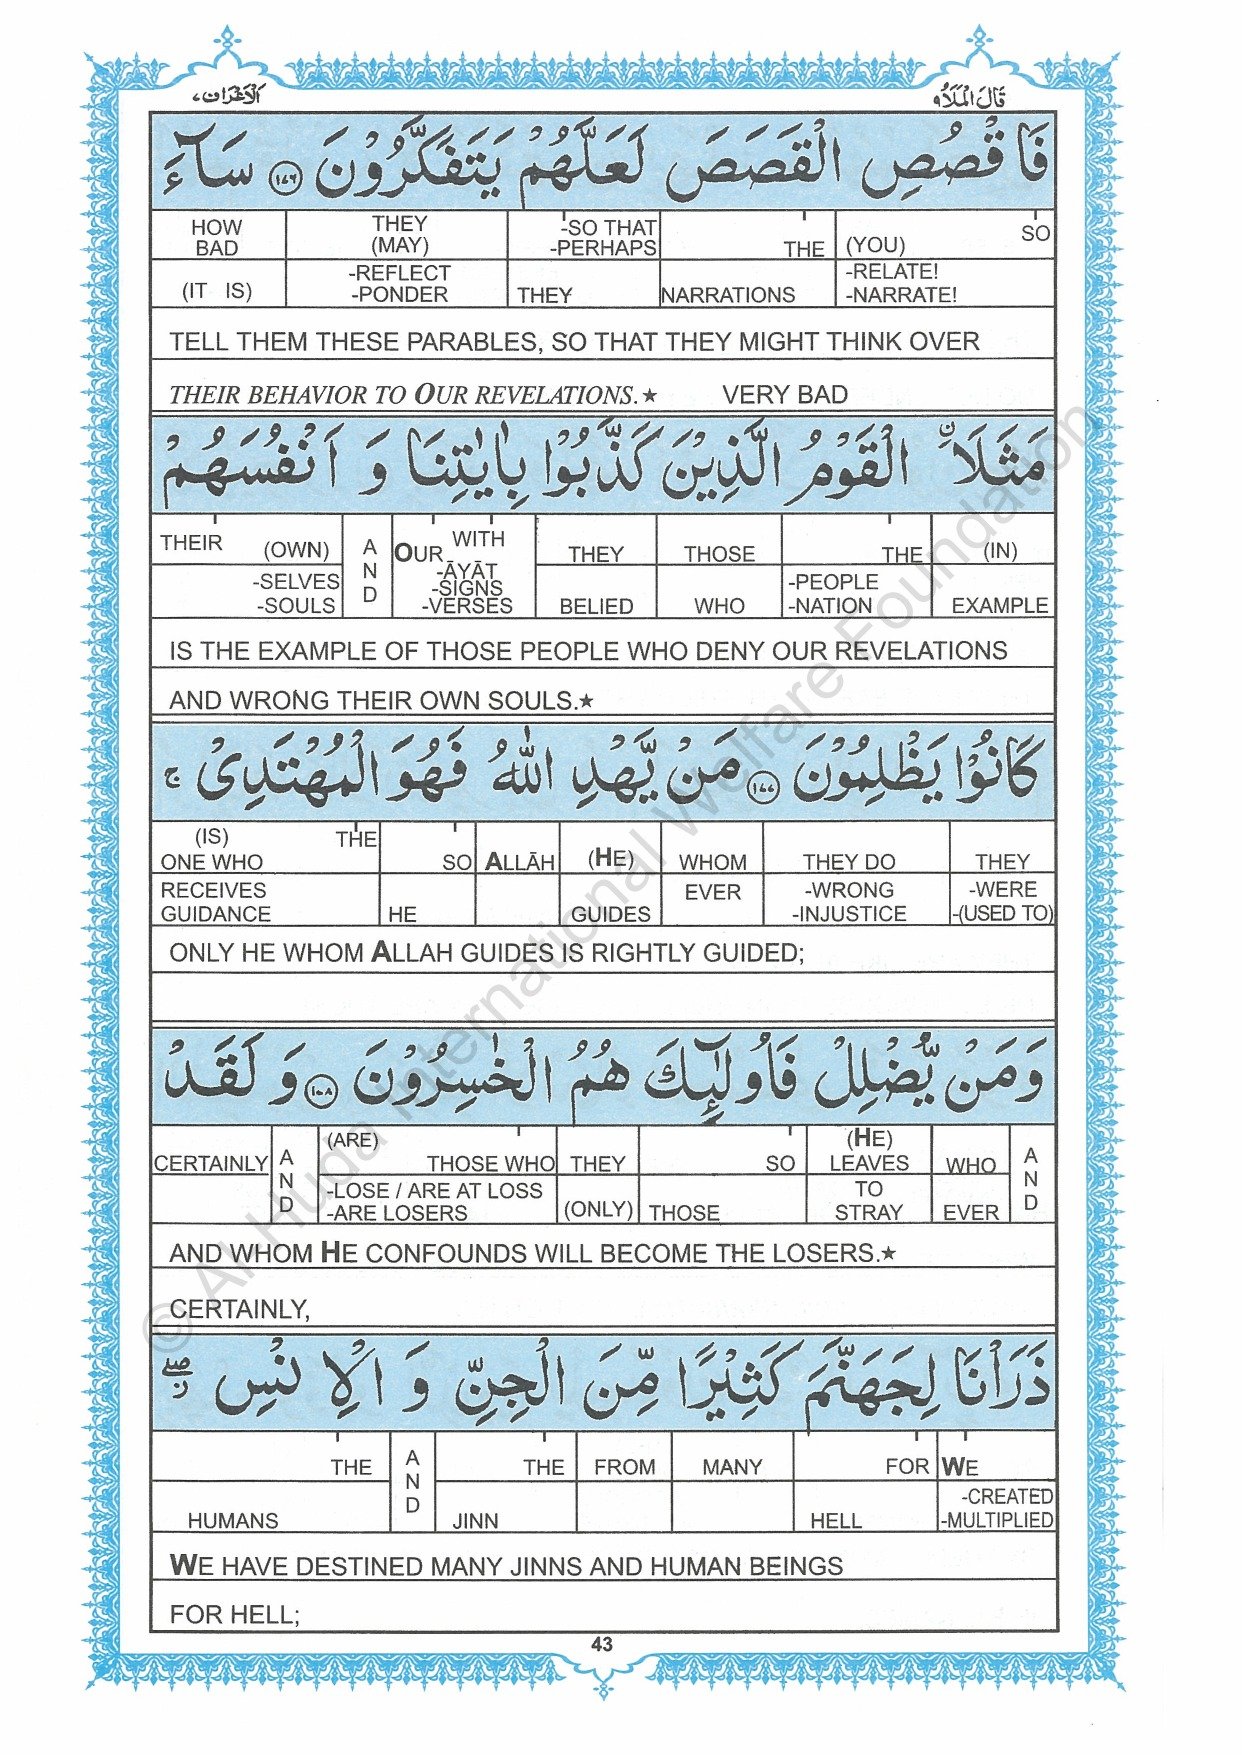 الاعراف ٧
قَالَ الْمَلَأُ ٩
فَاقْصُصِ الْقَصَصَ لَعَلَّهُمْ يَتَفَكَّرُوْنَ ١٧٦ سَآءَ
HOW BAD | THEY (MAY) | -SO THAT -PERHAPS | THE | (YOU) SO
(IT IS) | -REFLECT -PONDER | THEY | NARRATIONS | -RELATE! -NARRATE!
TELL THEM THESE PARABLES, SO THAT THEY MIGHT THINK OVER
THEIR BEHAVIOR TO OUR REVELATIONS.★ VERY BAD
مَثَلَاۨ الْقَوْمُ الَّذِيْنَ كَذَّبُوْا بِاٰيٰتِنَا وَ اَنْفُسَهُمْ
THEIR (OWN) | AND | OUR WITH | THEY | THOSE | THE | (IN)
-SELVES -SOULS | -ĀYĀT -SIGNS -VERSES | BELIED | WHO | -PEOPLE -NATION | EXAMPLE
IS THE EXAMPLE OF THOSE PEOPLE WHO DENY OUR REVELATIONS
AND WRONG THEIR OWN SOULS.★
كَانُوْا يَظْلِمُوْنَ ١٧٧ مَنْ يَّهْدِ اللّٰهُ فَهُوَ الْمُهْتَدِيْ ۚ
(IS) THE ONE WHO | SO | ALLĀH | (HE) | WHOM | THEY DO | THEY
RECEIVES GUIDANCE | HE | GUIDES | EVER | -WRONG -INJUSTICE | -WERE -(USED TO)
ONLY HE WHOM ALLAH GUIDES IS RIGHTLY GUIDED;
وَمَنْ يُّضْلِلْ فَاُولٰٓئِكَ هُمُ الْخٰسِرُوْنَ ١٧٨ وَ لَقَدْ
CERTAINLY | AND | (ARE) THOSE WHO | THEY | SO | (HE) LEAVES | WHO | AND
-LOSE / ARE AT LOSS -ARE LOSERS | (ONLY) | THOSE | TO STRAY | EVER
AND WHOM HE CONFOUNDS WILL BECOME THE LOSERS.★
CERTAINLY,
ذَرَاْنَا لِجَهَنَّمَ كَثِيْرًا مِّنَ الْجِنِّ وَ الْاِنْسِ ۖ
THE | AND | THE | FROM | MANY | FOR | WE
HUMANS | JINN | HELL | -CREATED -MULTIPLIED
WE HAVE DESTINED MANY JINNS AND HUMAN BEINGS
FOR HELL;
43
© Al Huda International Welfare Foundation